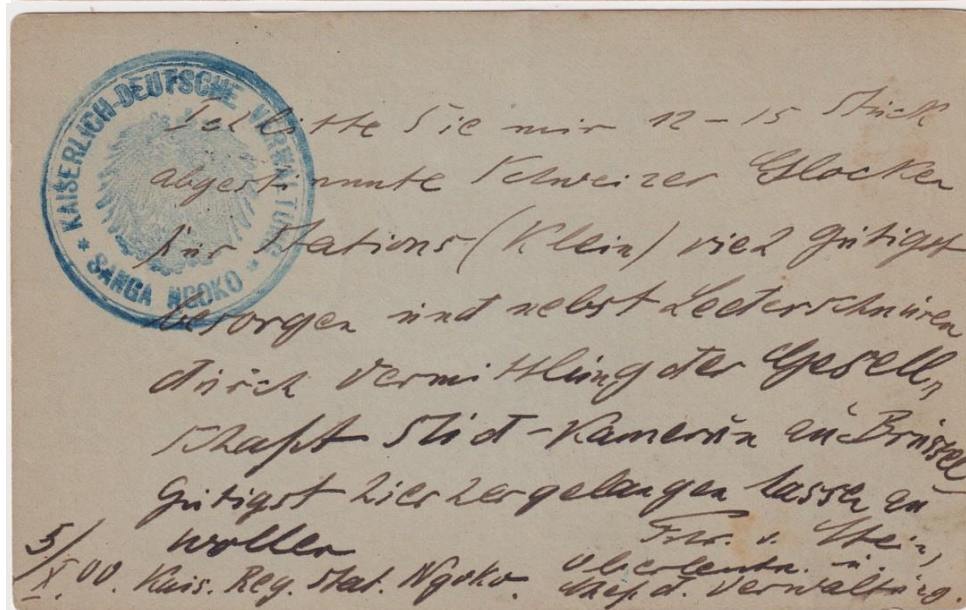 KAISERLICH-DEUTSCHE VERWALTUNG
* SANGA NGOKO *
Ich bitte Sie mir 12-15 Stück
abgestimmte Schweizer Glocken
für Stations (Klein) vieh gütigst
besorgen und nebst Lederschnüren
durch Vermittlung der Gesell„
schaft Süd-Kamerun zu Brüssel
gütigst hierher gelangen lassen zu
wollen
Frhr. v. Stein,
Oberleutn. u.
5/X.00. Kais. Reg. Stat. Ngoko. Chef d. Verwaltung.